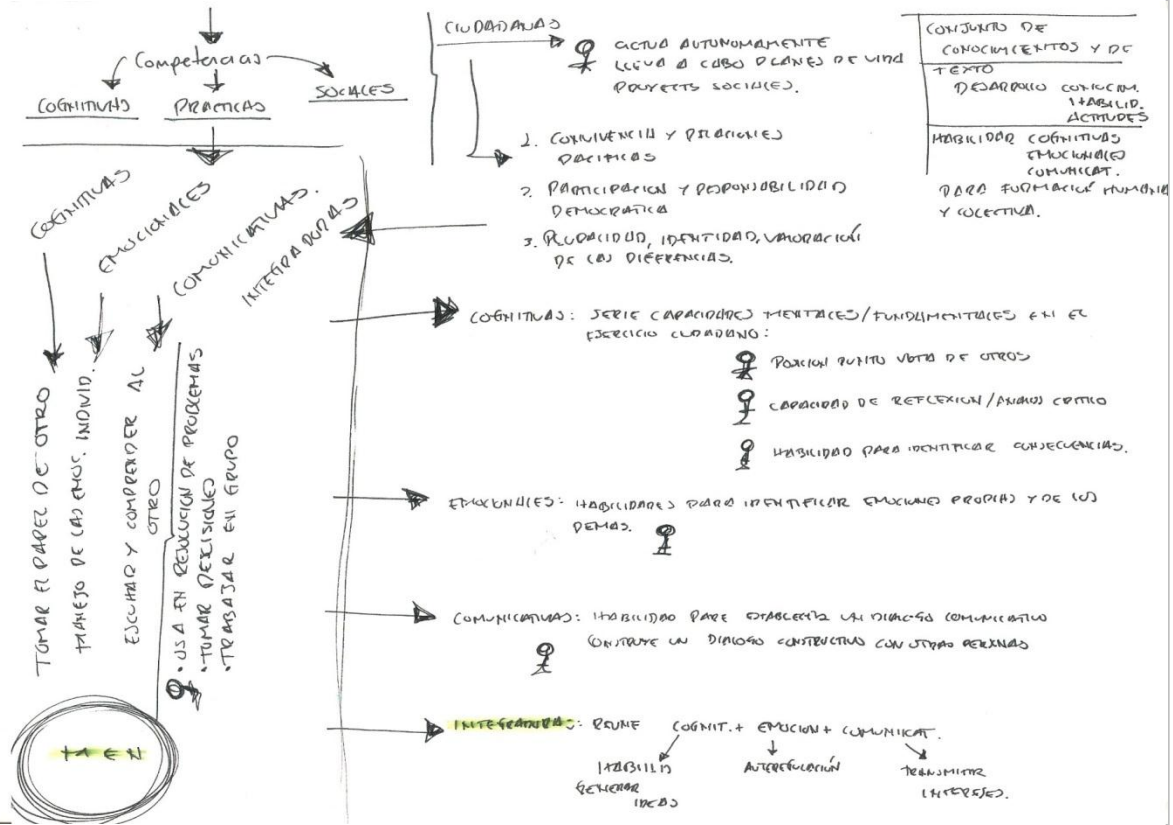 Competencias
COGNITIVAS PRACTICAS SOCIALES
COGNITIVAS
EMOCIONALES
COMUNICATIVAS.
INTEGRADORAS
TOMAR EL PAPEL DE OTRO
MANEJO DE LAS EMOC. INDIVID.
ESCUCHAR Y COMPRENDER AL
OTRO
• USA EN RESOLUCION DE PROBLEMAS
• TOMAR DECISIONES
• TRABAJAR EN GRUPO
MEN
CIUDADANAS
ACTUA AUTONOMAMENTE
LLEVA A CABO PLANES DE VIDA
PROYECTS SOCIALES.
1. CONVIVENCIA Y RELACIONES
PACIFICAS
2. PARTICIPACION Y RESPONSABILIDAD
DEMOCRATICA
3. PLURALIDAD, IDENTIDAD, VALORACIÓN
DE LAS DIFERENCIAS.
CONJUNTO DE
CONOCIMIENTOS Y DE
TEXTO
DESARROLLO CONOCIM.
HABILID.
ACTITUDES
HABILIDAD COGNITIVAS
EMOCIONALES
COMUNICAT.
PARA FORMACIÓN HUMANA
Y COLECTIVA.
COGNITIVAS: SERIE CAPACIDADES MENTALES/FUNDAMENTALES EN EL
EJERCICIO CIUDADANO:
POSICION PUNTO VISTA DE OTROS
CAPACIDAD DE REFLEXION/ CRITICO
HABILIDAD PARA IDENTIFICAR CONSECUENCIAS.
EMOCIONALES: HABILIDADES PARA IDENTIFICAR EMOCIONES PROPIAS Y DE LOS
DEMAS.
COMUNICATIVAS: HABILIDAD PARA ESTABLECER UN DIALOGO COMUNICATIVO
CONSTRUYE UN DIALOGO CONSTRUCTIVO CON OTRAS PERSONAS
INTEGRADORAS: REUNE COGNIT. + EMOCION + COMUNICAT.
HABILID AUTOREGULACIÓN TRANSMITIR
GENERAR INTERESES.
IDEAS